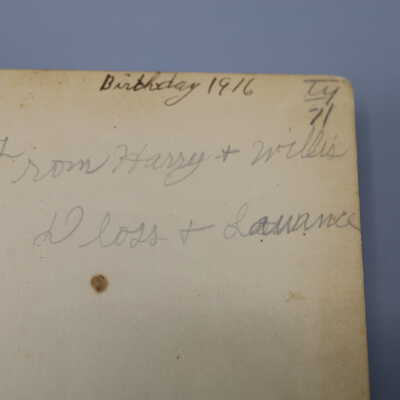 Birthday 1916
Ty
71
From Harry + Willis
Dloss + Lauvance